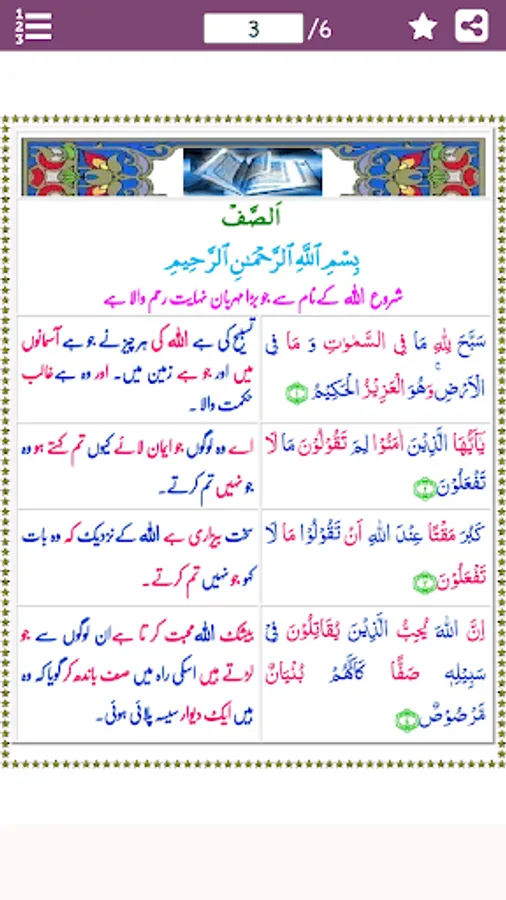 1
2
3
3
/6
اَلصَّفّ
بِسْمِ ٱللَّهِ ٱلرَّحْمَٰنِ ٱلرَّحِيمِ
شروع اللہ کے نام سے جو بڑا مہربان نہایت رحم والا ہے
سَبَّحَ لِلّٰهِ مَا فِی السَّمٰوٰتِ وَ مَا فِی
الْاَرْضِ ۚ وَهُوَ الْعَزِیْزُ الْحَكِیْمُ ﴿۱﴾
تسبیح کی ہے اللہ کی ہر چیز نے جو ہے آسمانوں
میں اور جو ہے زمین میں۔ اور وہ ہے غالب
حکمت والا۔
یٰۤاَیُّهَا الَّذِیْنَ اٰمَنُوْا لِمَ تَقُوْلُوْنَ مَا لَا
تَفْعَلُوْنَ ﴿۲﴾
اے وہ لوگوں جو ایمان لائے کیوں تم کہتے ہو وہ
جو نہیں تم کرتے۔
كَبُرَ مَقْتًا عِنْدَ اللّٰهِ اَنْ تَقُوْلُوْا مَا لَا
تَفْعَلُوْنَ ﴿۳﴾
سخت بیزاری ہے اللہ کے نزدیک کہ وہ بات
کہو جو نہیں تم کرتے۔
اِنَّ اللّٰهَ یُحِبُّ الَّذِیْنَ یُقَاتِلُوْنَ فِیْ
سَبِیْلِهٖ صَفًّا كَاَنَّهُمْ بُنْیَانٌ
مَّرْصُوْصٌ ﴿۴﴾
بیشک اللہ محبت کرتا ہے ان لوگوں سے جو
لڑتے ہیں اسکی راہ میں صف باندھ کر گویا کہ وہ
ہیں ایک دیوار سیسہ پلائی ہوئی۔